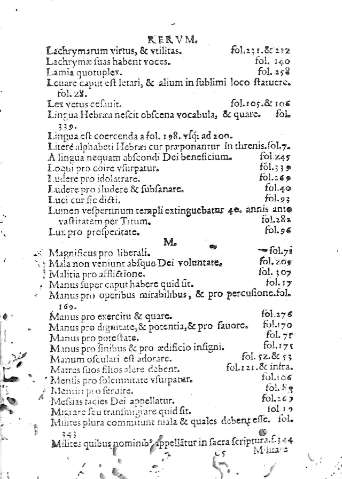 RERVM.
Lachrymarum virtus, & vtilitas. fol.231.& 232
Lachrymæ suas habent voces. fol. 240
Lamia quotuplex. fol. 258
Leuare caput est letari, & alium in sublimi loco statuere.
fol. 28.
Lex vetus cessuit. fol.105.& 106
Lingua Hebræa nescit obscena vocabula, & quare. fol.
339.
Lingua est coercenda a fol. 198. vsq; ad 200.
Literæ alphabeti Hebræi cur præponantur in threnis.fol.7.
A lingua nequam abscondi Dei beneficium. fol.245
Loqui pro coire vsurpatur. fol.339
Ludere pro idolatrare. fol.269
Ludere pro illudere & subsanare. fol.40
Luci cur sic dicti. fol.93
Lumen vespertinum templi extinguebatur 40. annis ante
vastitatem per Titum. fol.282
Lux pro prosperitate. fol.96
M.
Magnificus pro liberali. fol.71
Mala non veniunt absque Dei voluntate. fol.209
Malitia pro afflictione. fol.307
Manus super caput habere quid sit. fol.17
Manus pro operibus mirabilibus, & pro percussione.fol.
169.
Manus pro exercitu & quare. fol.276
Manus pro dignitate, & potentia, & pro fauore. fol.170
Manus pro potestate. fol. 75
Manus pro finibus & pro ædificio insigni. fol.175
Manum osculari est adorare. fol.52.& 53
Matres suos filios alere debent. fol.121.& infra.
Mensis pro solemnitate vsurpatur. fol.106
pro fol.
Messias facies Dei appellatur. fol.267
Migrare seu transmigrare quid sit. fol 19
Milites plura committunt mala & quales debent esse. fol.
343
Milites quibus nominib⁹ appellãtur in sacra scriptura.f.344
Milita-